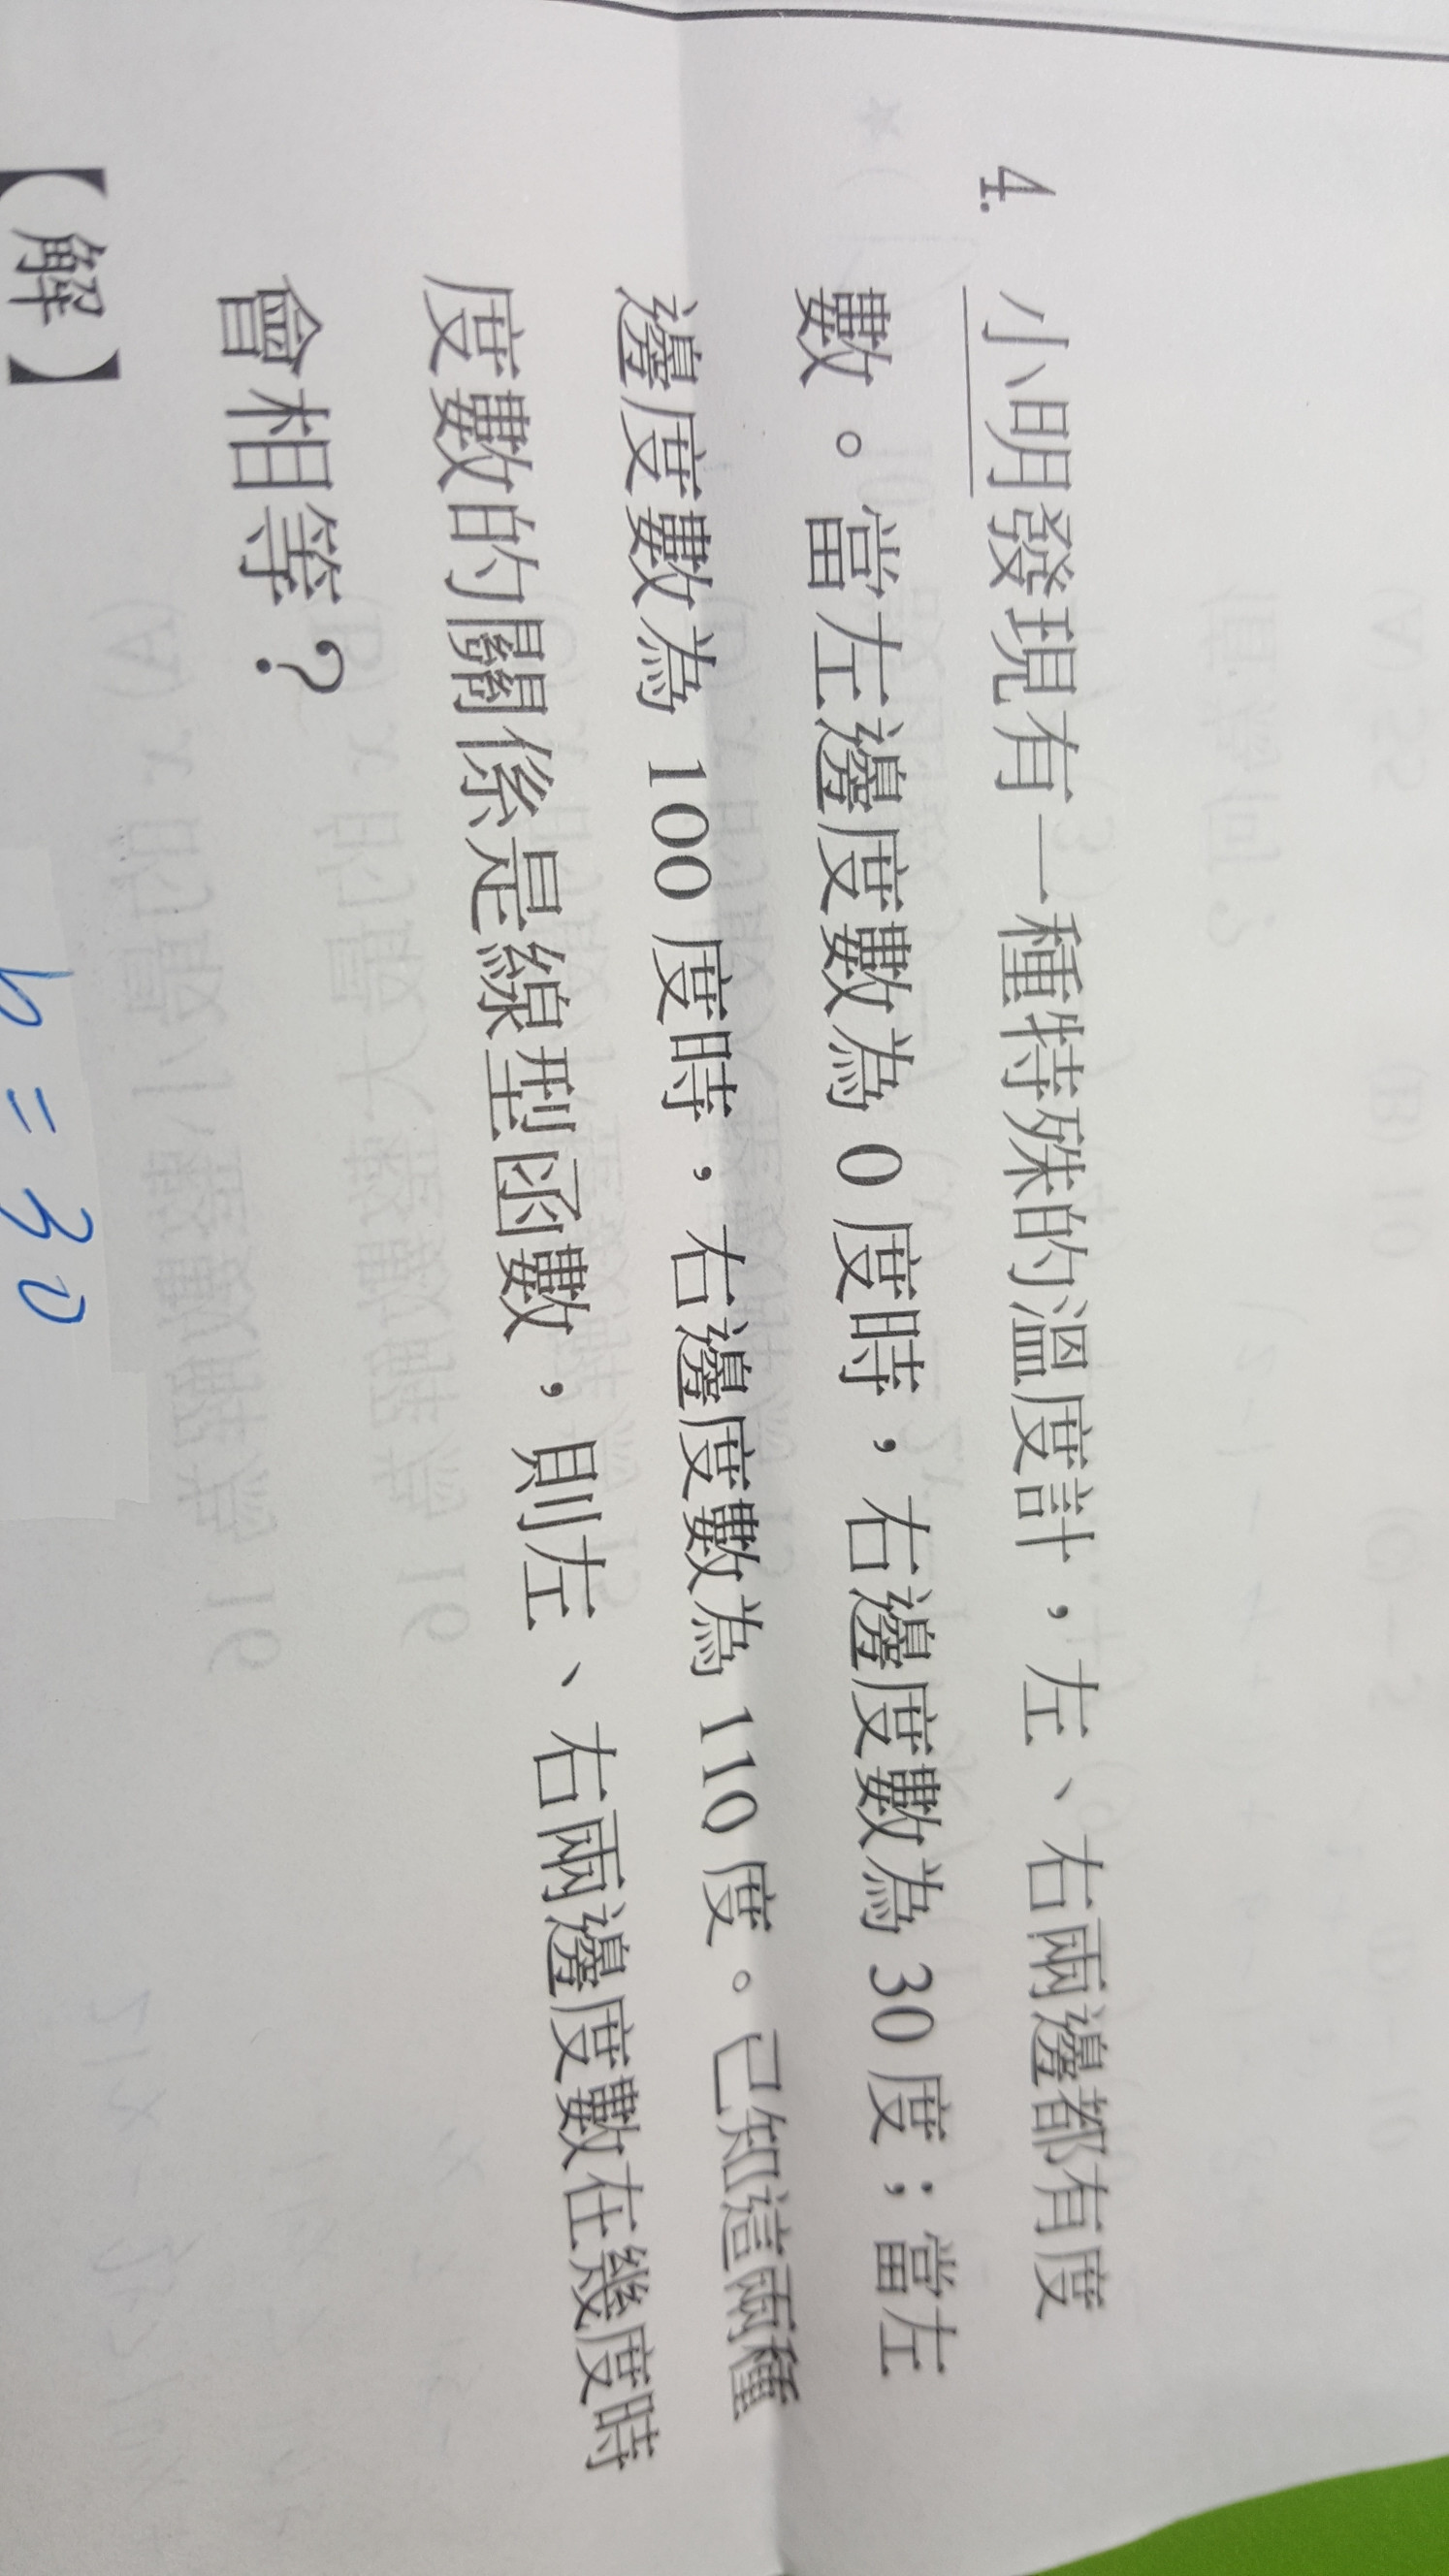 4. 小明發現有一種特殊的溫度計，左、右兩邊都有度
數。當左邊度數為 0 度時，右邊度數為 30 度；當左
邊度數為 100 度時，右邊度數為 110 度。已知這兩種
度數的關係是線型函數，則左、右兩邊度數在幾度時
會相等？
【解】
b = 30